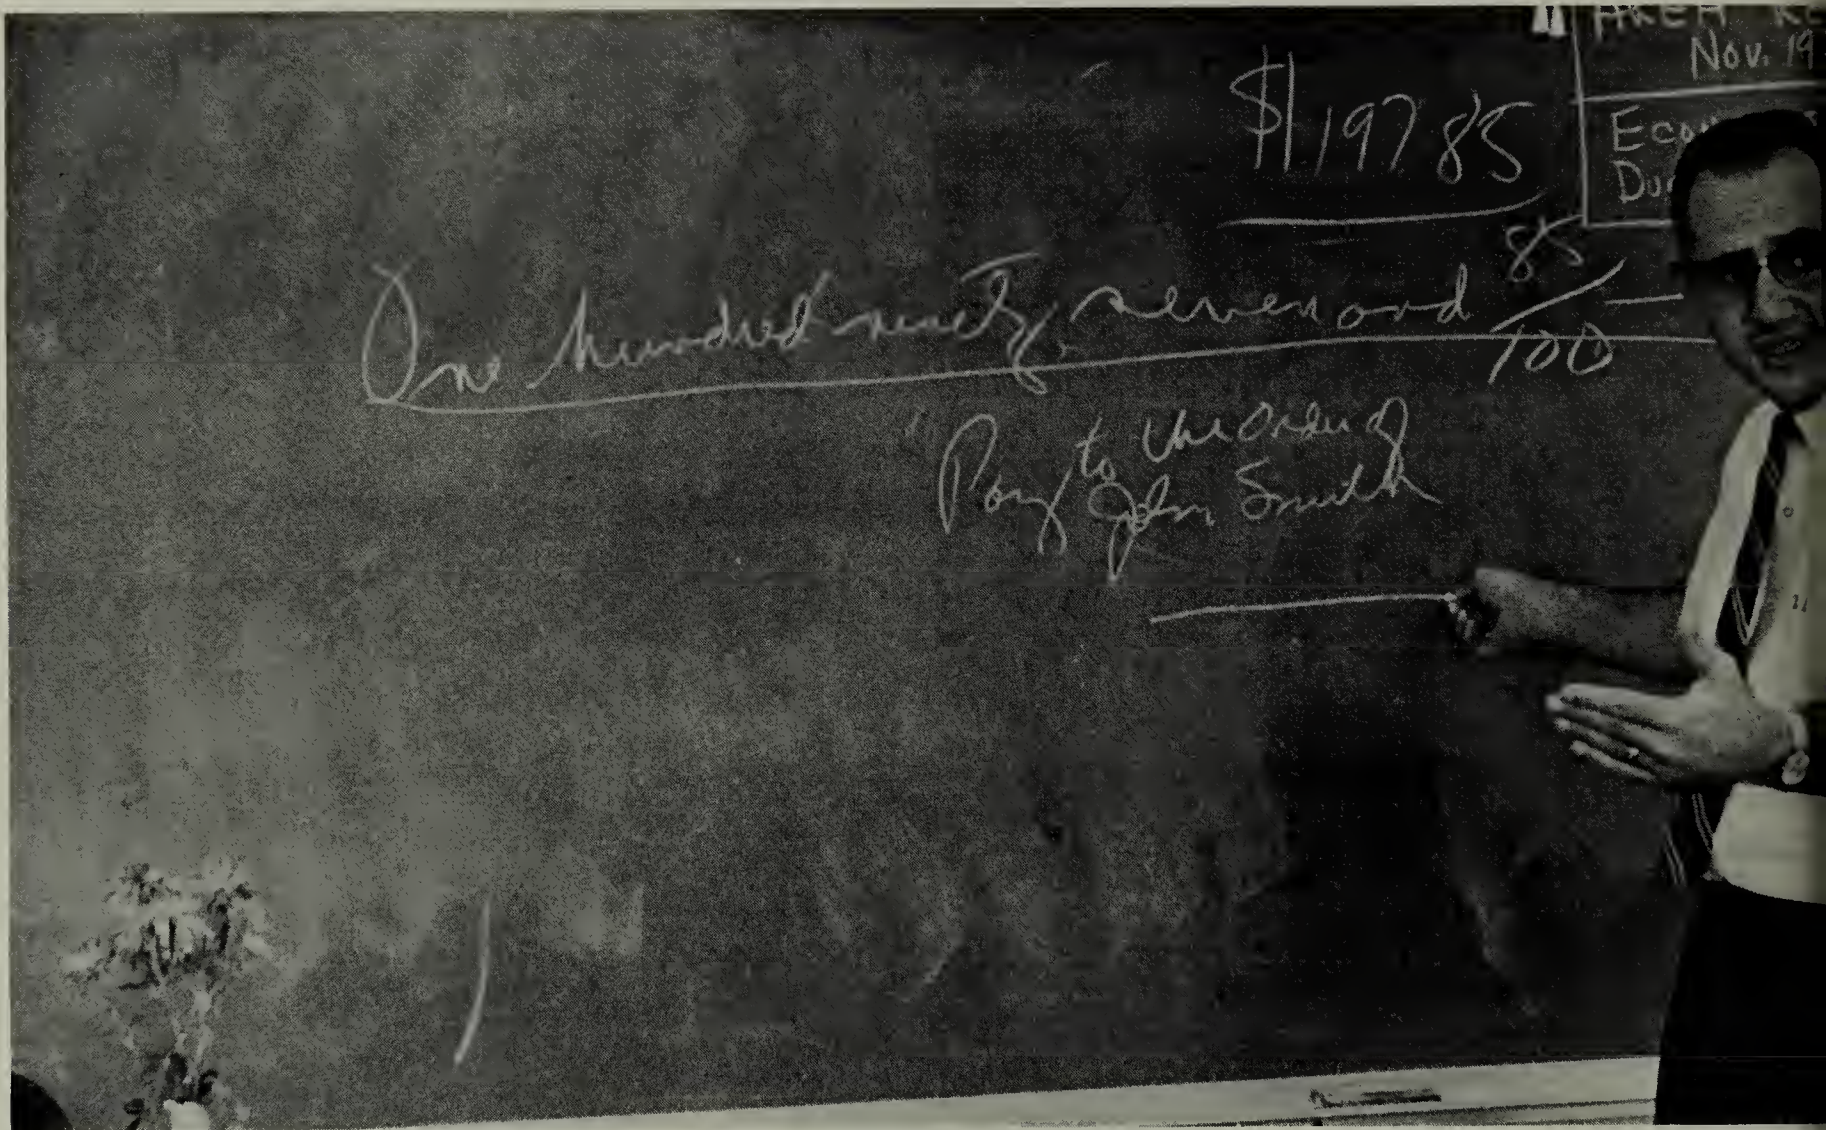 Nov. 19
$197.85
One hundred ninety, seven and 85/100 —
Pay to the order of
John Smith